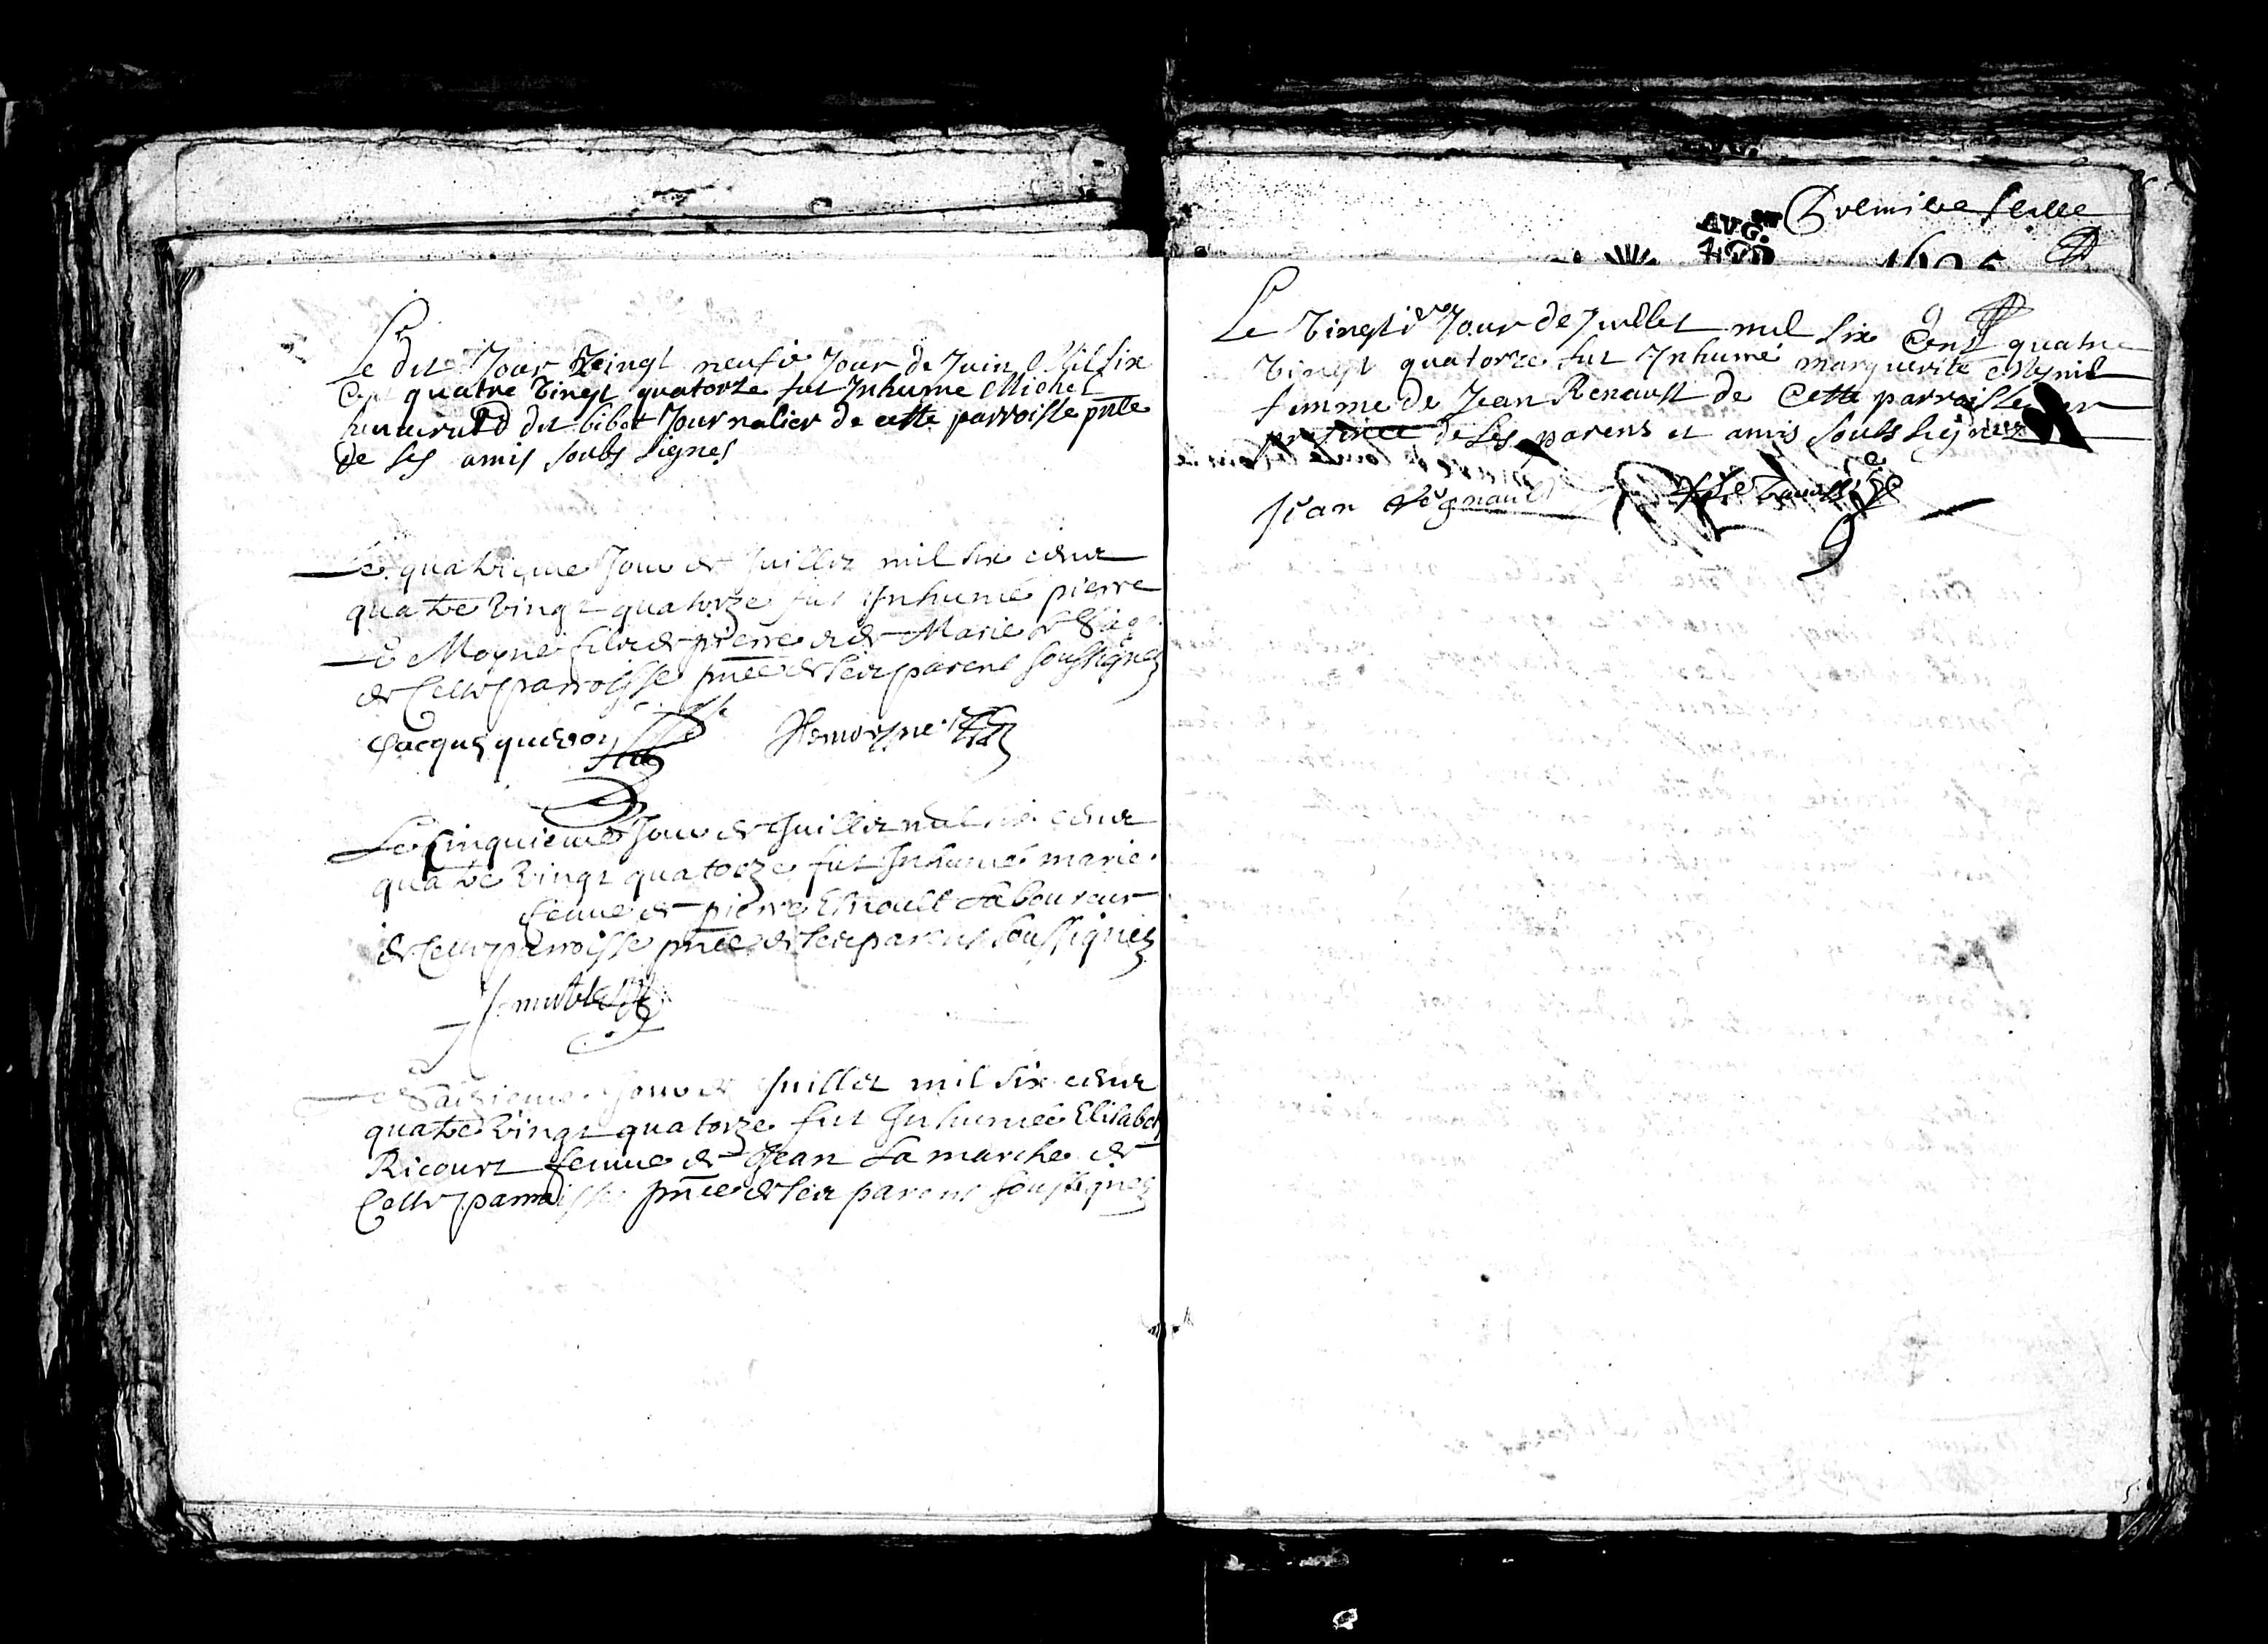 Le dit Jour Vingt neufie Jour de Juin Mil six
Cent quatre Vingt quatorze fut Inhume Michel
dit bibet Journalier de cette parroisse pnte
de ses amis soubs signes
Le quatrieme Jour de Juillet mil six cent
quatre Vingt quatorze fut Inhumé pierre
Le Moyne fils de pierre et de Marie
de cette parroisse pnce de ses parens soussignez
Jacques Lemoyne
Le Cinquieme Jour de Juillet mil six cent
quatre Vingt quatorze fut Inhumée marie
femme de pierre Laboureur
de cette parroisse pnce de ses parens soussignez
Le Saizieme Jour de Juillet mil six cent
quatre Vingt quatorze fut Inhumée Elisabeth
Ricourt femme de Jean Lamarche de
Cette parroisse pnce de ses parens soussignez
Premiere feuille
AVG.
1695
Le Vingtie Jour de Juillet mil six Cent quatre
Vingt quatorze fut Inhumé marguerite
femme de Jean Renault de Cette parroisse en
presence de ses parens et amis soubs signez
Jean Regnault